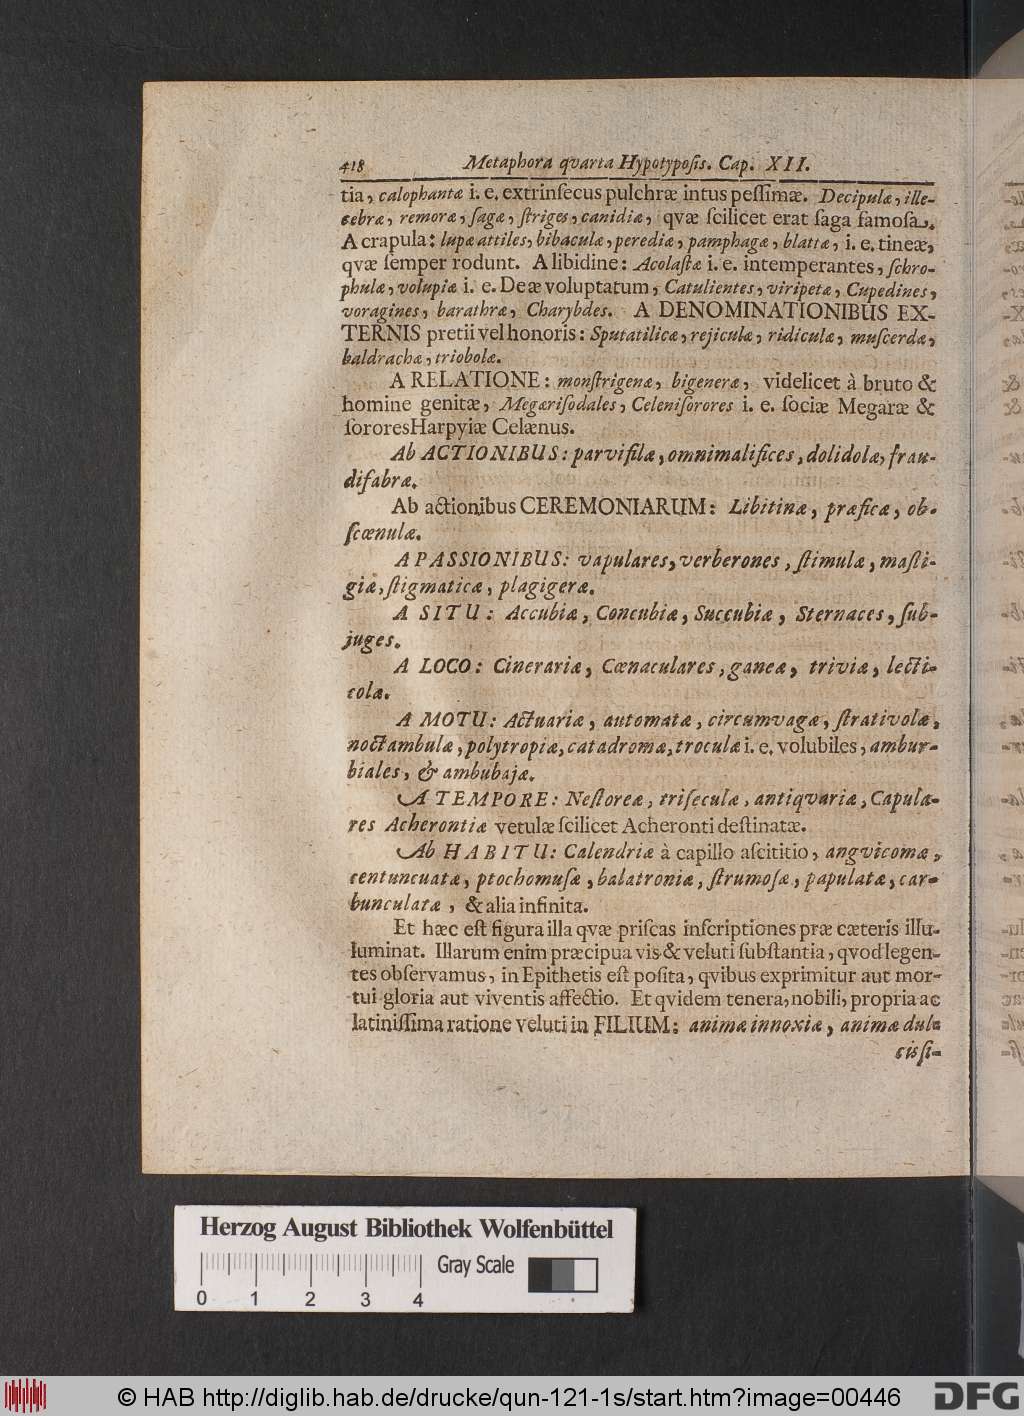 418 Metaphora qvarta Hypotyposis. Cap. XII.
tia, calophantæ i. e. extrinſecus pulchræ intus peſſimæ. Decipulæ, ille-
cebræ, remoræ, ſagæ, ſtriges, canidiæ, qvæ ſcilicet erat ſaga famoſa.
A crapula: lupæ attiles, bibaculæ, perediæ, pamphagæ, blattæ, i. e. tineæ,
qvæ ſemper rodunt. A libidine: Acolaſtæ i. e. intemperantes, ſchro-
phulæ, volupiæ i. e. Deæ voluptatum, Catulientes, viripetæ, Cupedines,
voragines, barathræ, Charybdes. A DENOMINATIONIBUS EX-
TERNIS pretii vel honoris: Sputatilicæ, rejiculæ, ridiculæ, muſcerdæ,
baldrachæ, triobolæ.
A RELATIONE: monſtrigenæ, bigeneræ, videlicet à bruto &
homine genitæ, Megæriſodales, Celeniſorores i. e. ſociæ Megaræ &
ſororesHarpyiæ Celænus.
Ab ACTIONIBUS: parvifilæ, omnimalifices, dolidolæ, frau-
difabræ.
Ab actionibus CEREMONIARUM: Libitinæ, præficæ, ob-
ſcœnulæ.
A PASSIONIBUS: vapulares, verberones, ſtimulæ, maſti-
giæ, ſtigmaticæ, plagigeræ.
A SITU: Accubiæ, Concubiæ, Succubiæ, Sternaces, ſub-
juges.
A LOCO: Cinerariæ, Cœnaculares, ganeæ, triviæ, lecti-
colæ.
A MOTU: Actuariæ, automatæ, circumvagæ, ſtrativolæ,
noctambulæ, polytropiæ, catadromæ, troculæ i. e. volubiles, ambur-
biales, & ambubajæ.
A TEMPORE: Neſtoreæ, triſeculæ, antiqvariæ, Capula-
res Acherontiæ vetulæ ſcilicet Acheronti deſtinatæ.
Ab HABITU: Calendriæ à capillo aſcititio, angvicomæ,
centuncuatæ, ptochomuſæ, balatroniæ, ſtrumoſæ, papulatæ, car-
bunculatæ, & alia infinita.
Et hæc eſt figura illa qvæ priſcas inſcriptiones præ cæteris illu-
luminat. Illarum enim præcipua vis & veluti ſubſtantia, qvod legen-
tes obſervamus, in Epithetis eſt poſita, qvibus exprimitur aut mor-
tui gloria aut viventis affectio. Et qvidem tenera, nobili, propria ac
latiniſſima ratione veluti in FILIUM: animæ innoxiæ, animæ dul-
cisſi-
Herzog August Bibliothek Wolfenbüttel
Gray Scale
0 1 2 3 4
© HAB http://diglib.hab.de/drucke/qun-121-1s/start.htm?image=00446
DFG